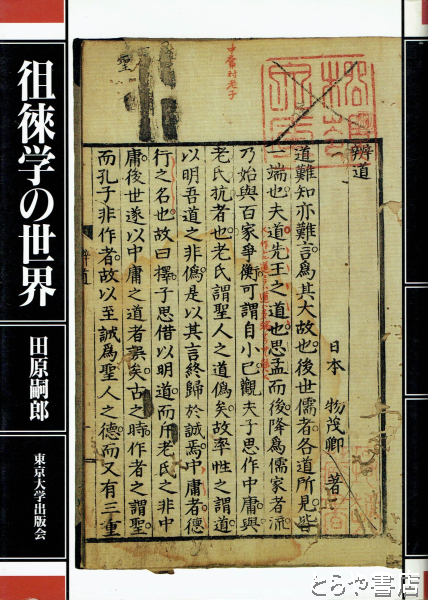 徂徠学の世界
田原嗣郎
東京大学出版会
辨道
日本 物茂卿 著
道難知亦難言爲其大故也後世儒者各道所見皆
一端也夫道先王之道也思孟而後降爲儒家者流
乃始與百家爭衡可謂自小已觀夫子思作中庸與
老氏抗者也老氏謂聖人之道僞矣故率性之謂道
以明吾道之非僞是以其言終歸於誠焉中庸者德
行之名也故曰擇子思借以明道而斥老氏之非中
庸後世遂以中庸之道者誤矣古之時作者之謂聖
而孔子非作者故以至誠爲聖人之德而又有三重
辨道
とらや書店